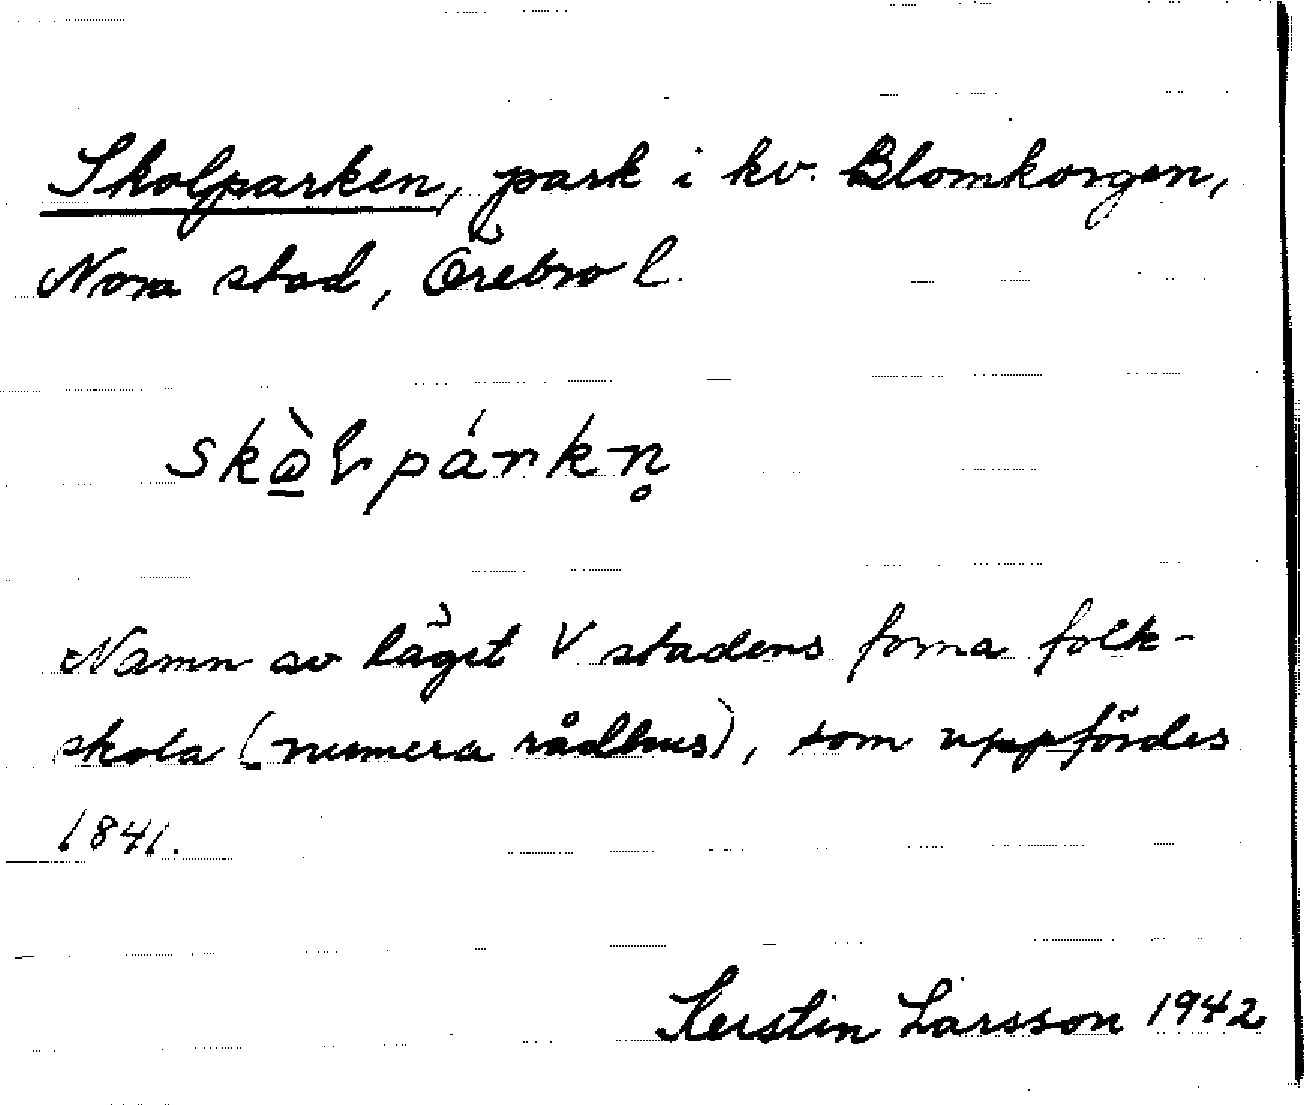 Skolparken, park i kv. Blomkorgen,
Nora stad, Örebro l.
skò̲ɫpárkn̥
Namn av läget V stadens forna folk-
skola (numera rådhus), som uppfördes
1841.
Kerstin Larsson 1942